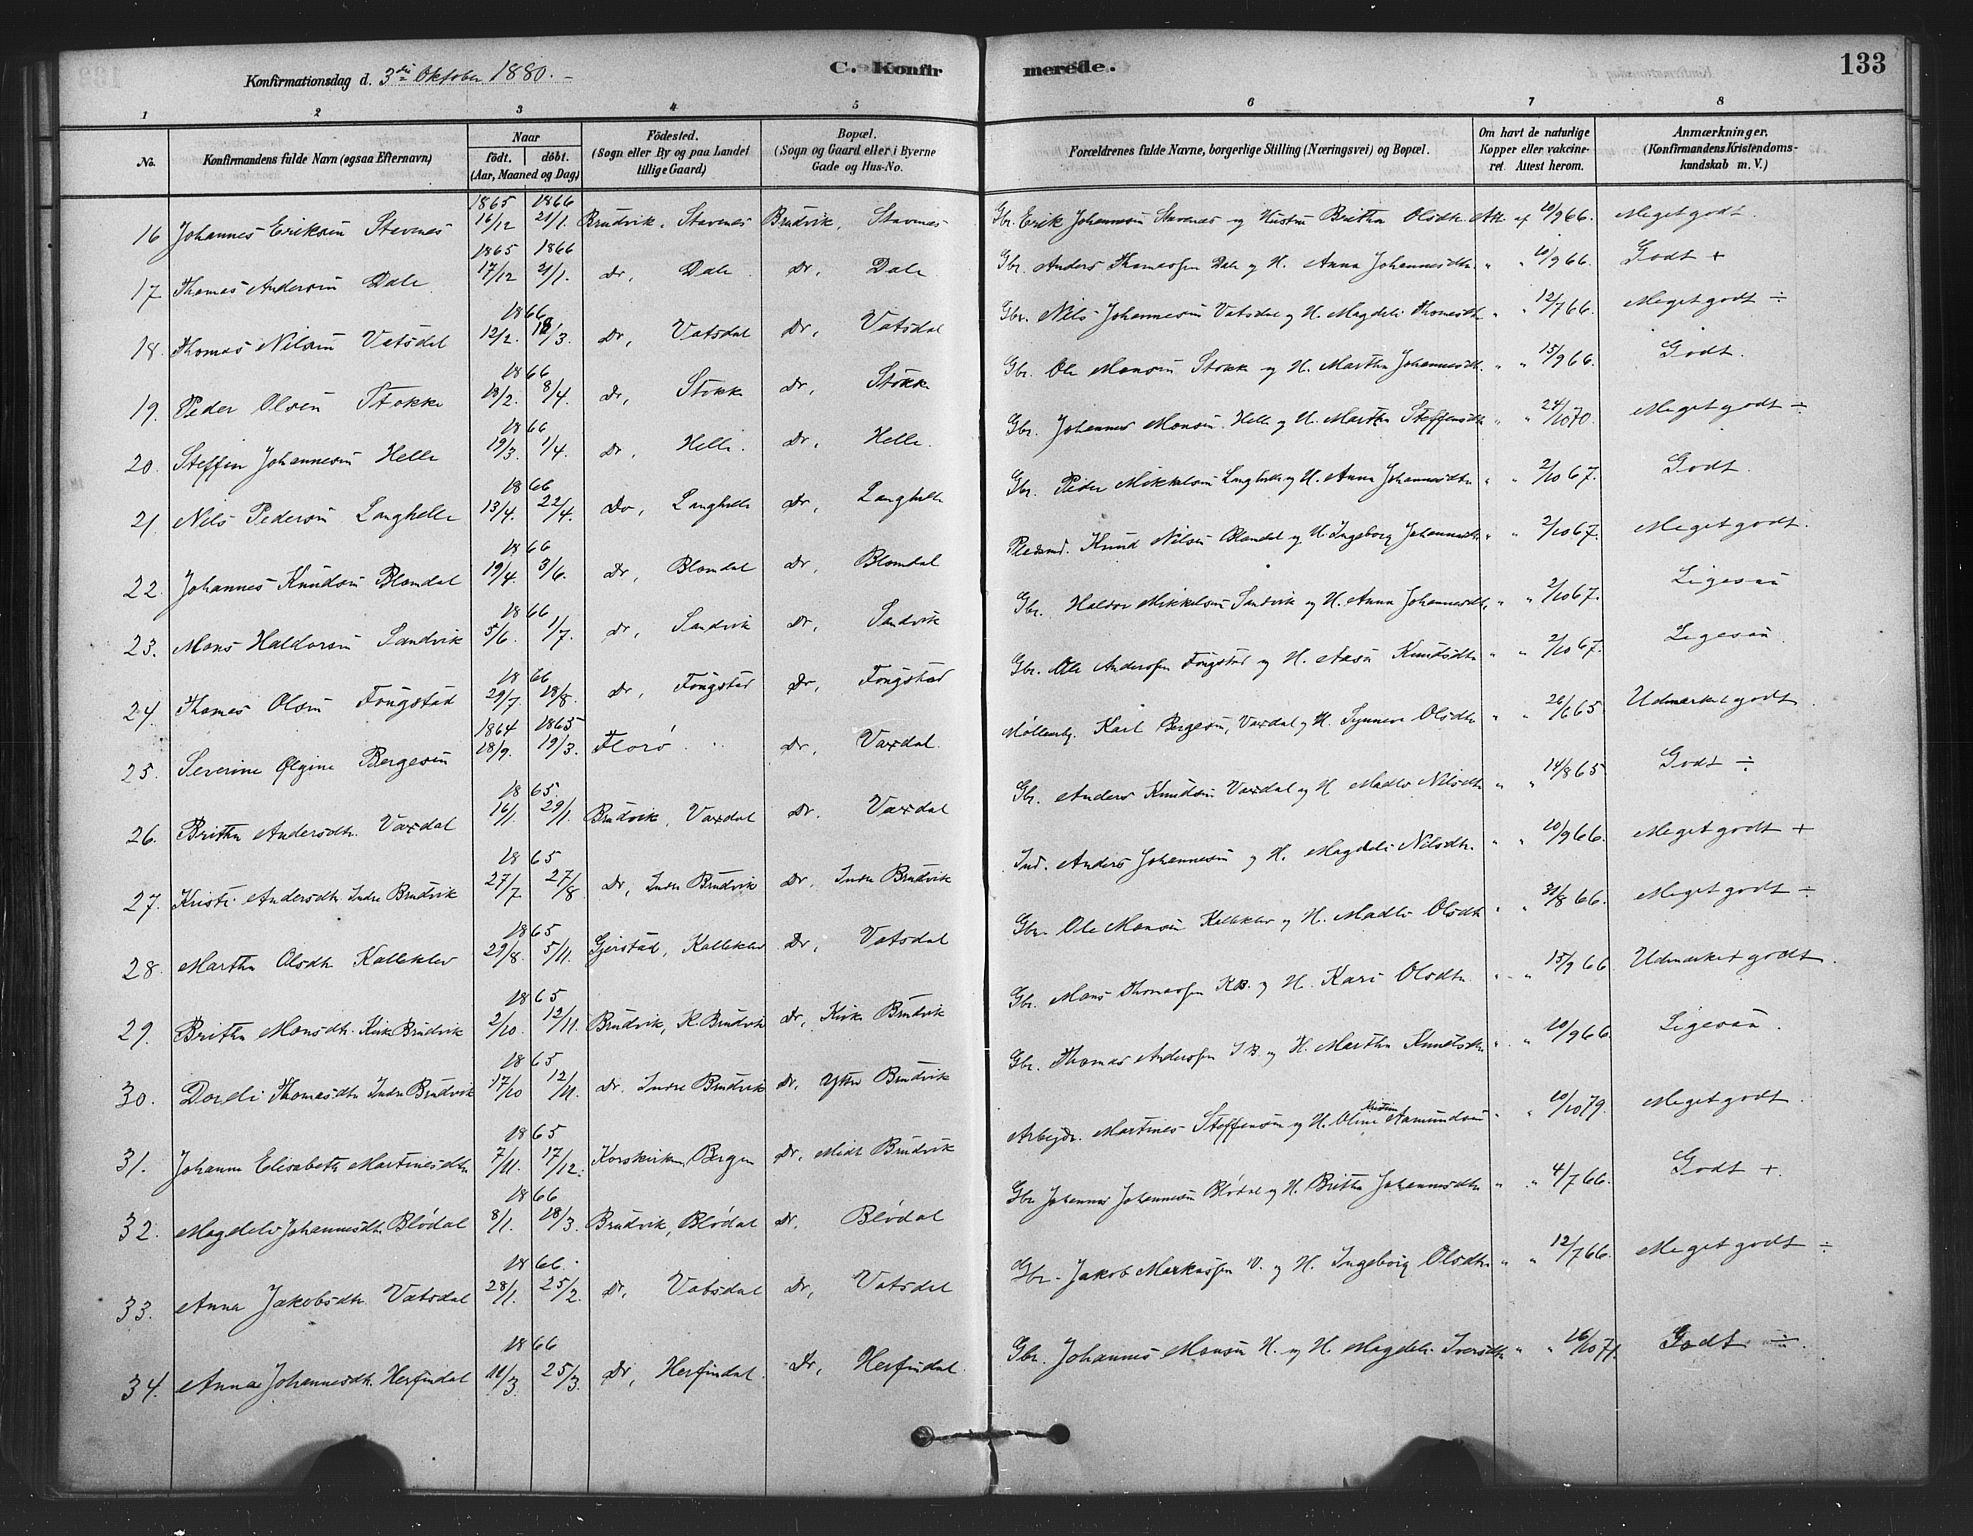 Konfirmationsdag d. 3die Oktober 1880.
C. Konfir merede. 133
1 2 3 4 5 6 7 8
No. Konfirmandens fulde Navn (ogsaa Efternavn) Naar født. døbt. (Aar, Maaned og Dag) Fødested. (Sogn eller By og paa Landet tillige Gaard) Bopæl. (Sogn og Gaard eller i Byerne Gade og Hus-No. Forældrenes fulde Navne, borgerlige Stilling (Næringsvei) og Bopæl. Om havt de naturlige Kopper eller vakcineret. Attest herom. Anmærkninger. (Konfirmandens Kristendomskundskab m. V.)
16 Johannes Eriksen Stavenes 1865 16/12 1866 21/1. Brudvik, Stavenes Brudvik, Stavnes Gbr. Erik Johannesen Stavenes og Hustru Britha Olsdtr. Att. af 10/9 66. Meget godt.
17 Thomas Andersen Dale 1865 17/12 1866 21/1. Do, Dale Do, Dale Gbr. Anders Thomassen Dale og H. Anna Johannesdtr. " " 10/9 66. Godt +
18. Thomas Nilsen Vatsdal 1866 12/2. 18/3. Do, Vatsdal Do, Vatsdal Gbr. Nils Johannesen Vatsdal og H. Magdeli Thomesdtr " " 12/7 66. Meget godt ÷
19. Peder Olsen Stokke 1866 18/2. 8/4. Do, Stokke Do, Stokke Gbr. Ole Monsen Stokk og H. Martha Johannesdtr. " " 15/9 66. Godt.
20. Steffen Johannesen Helle 1866 19/3. 1/4. Do, Helle. Do, Helle. Gbr. Johannes Monsen Helle og H. Martha Steffensdtr " " 24/10 70. Meget godt ÷
21. Nils Pedersen Langhelle 1866 13/4. 22/4. Do, Langhelle Do, Langhelle Gbr. Peder Mikkelsen Langhelle og H. Anna Johannesdtr " " 2/10 67. Godt.
22. Johannes Knudsen Blomdal 1866 19/4. 3/6. Do, Blomdal Do, Blomdal Pladsmd. Knud Nilsen Blomdal og H. Ingeborg Johannesdtr " " 2/10 67. Meget godt.
23. Mons Haldorsen Sandvik 1866 5/6. 1/7. Do, Sandvik Do, Sandvik Gbr. Haldor Mikkelsen Sandvik og H. Anna Johannesdtr. " " 2/10 67. Ligesaa
24. Thomas Olsen Fougstad 1866 29/7. 18/8. Do, Fougstad Do, Fougstad Gbr. Ole Andersen Fougstad og H. Aasa Knudsdtr " " 2/10 67. Ligesaa.
25. Severine Olgine Bergesen 1864 18/9. 1865 19/3. Florø. Do, Vaxdal. Karl Bergesen, Vaxdal og H. Synneva Olsdtr " " 26/6 65 Udmærket godt.
26. Britha Andersdtr. Vaxdal 1865. 16/1. 29/1. Brudvik, Vaxdal Do. Vaxdal Gbr. Anders Knudsen Vaxdal og H. Madlev Nilsdtr " " 14/8 65 Godt ÷
27. Kristi Andersdtr. Indre Brudvik 1865 27/7 27/8 Do, Indre Brudvik Do, Indre Brudvik Ind. Anders Johannesen og H. Magdeli Nilsdtr. " " 10/9 66. Meget godt +
28. Martha Olsdtr Kalleklev 1865 29/8. 5/11. Gjerstad, Kalleklev Do, Vatsdal Gbr. Ole Monsen Kalleklev og H. Madlev Olsdtr " " 31/8 66. Meget godt ÷
29. Britha Monsdtr. Kirk Brudvik 1865 2/10. 12/11. Brudvik, K. Brudvik Do, Kirke Brudvik Gbr. Mons Thomassen K.B. og H. Kari Olsdtr " " 15/9 66 Udmærket godt.
30. Dordi Thomasdtr Indre Brudvik 1865 17/10 12/11. Do. Indre Brudvik Do, Ytre Brudvik Gbr. Thomas Andersen I.B. og H. Martha Knudsdtr " " 10/9 66. Ligesaa.
31. Johanne Elisabeth Martinesdtr 1865 7/11. 17/12. Korskirken, Bergen Do, Midt Brudvik Arbejdr. Martines Steffensen og H. Oline Kristine Aamundsen " " 10/10 79. Meget godt.
32. Magdeli Johannesdtr. Blødal 1866 8/1. 18/3. Brudvik, Blødal Do, Blødal Gbr Johannes Johannesen Blødal og H. Britha Johannesdtr " " 4/7 66. Godt +
33. Anna Jakobsdtr. Vatsdal 1866. 28/1. 25/2. Do, Vatsdal Do, Vatsdal Gbr. Jakob Markussen V. og H. Ingeborg Olsdtr " " 12/7 66. Meget godt ÷
34. Anna Johannesdtr. Herfindal 1866 11/3. 25/3. Do, Herfindal. Do, Herfindal. Gbr. Johannes Monsen H. og H. Magdeli Iversdtr " " 16/10 71. Godt ÷